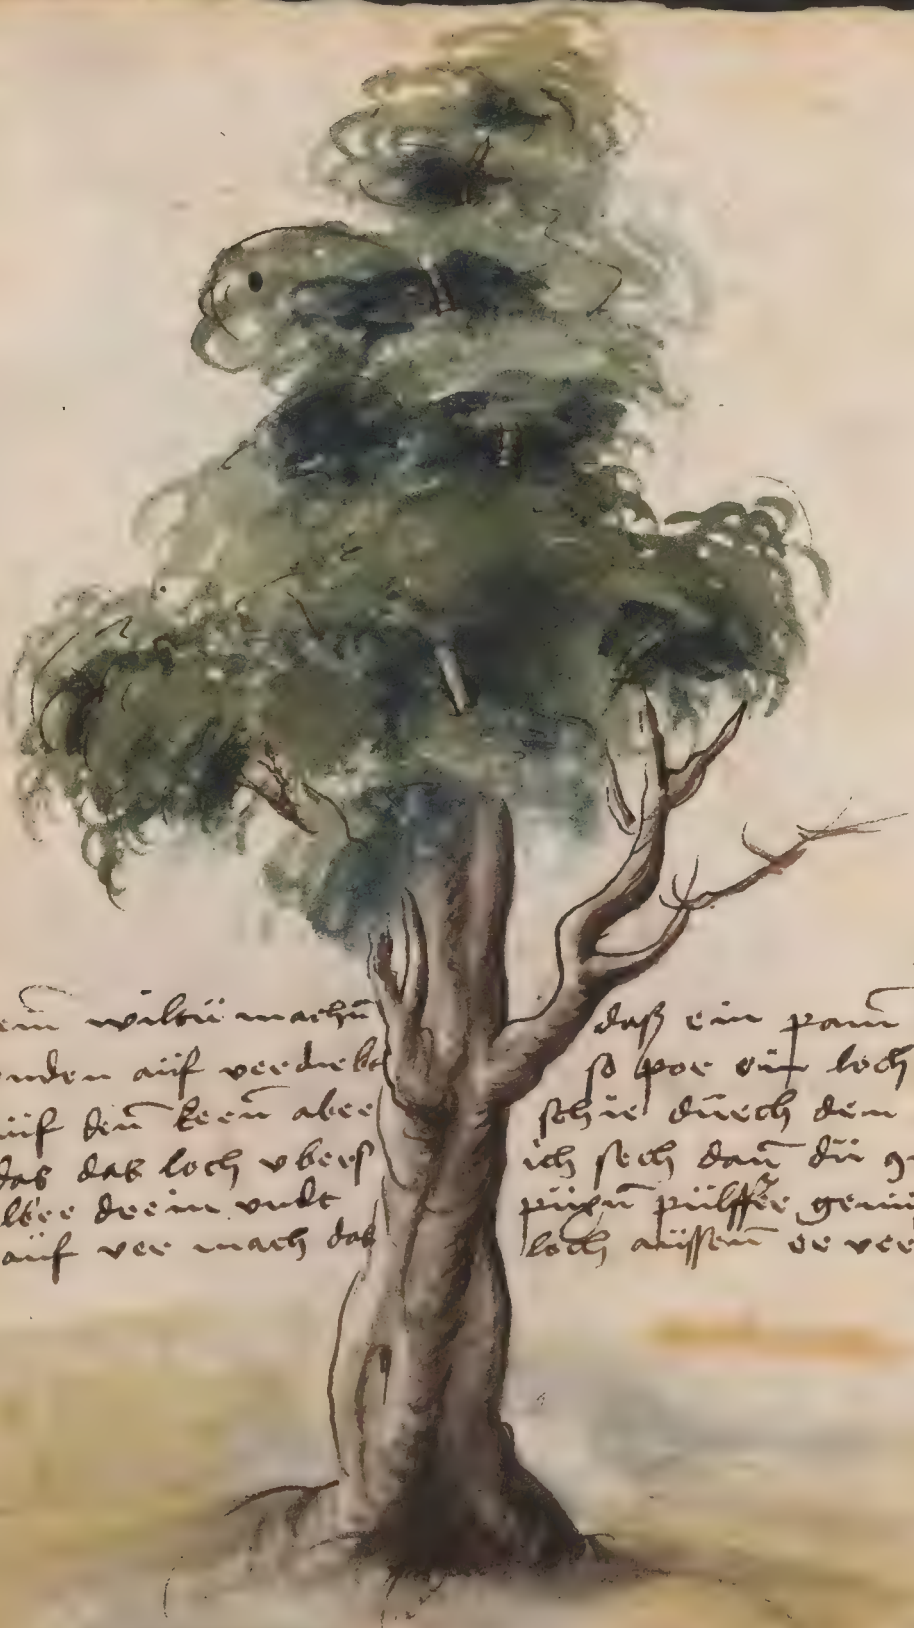 wiltu machn daß ein pam
nden auf verdiebt so por ein loch
auf den kern aber schie durch den
das das loch vbers ich sech dan du
drein vndt puxn pulffer genu
auf ver mach das loch aussen er ver